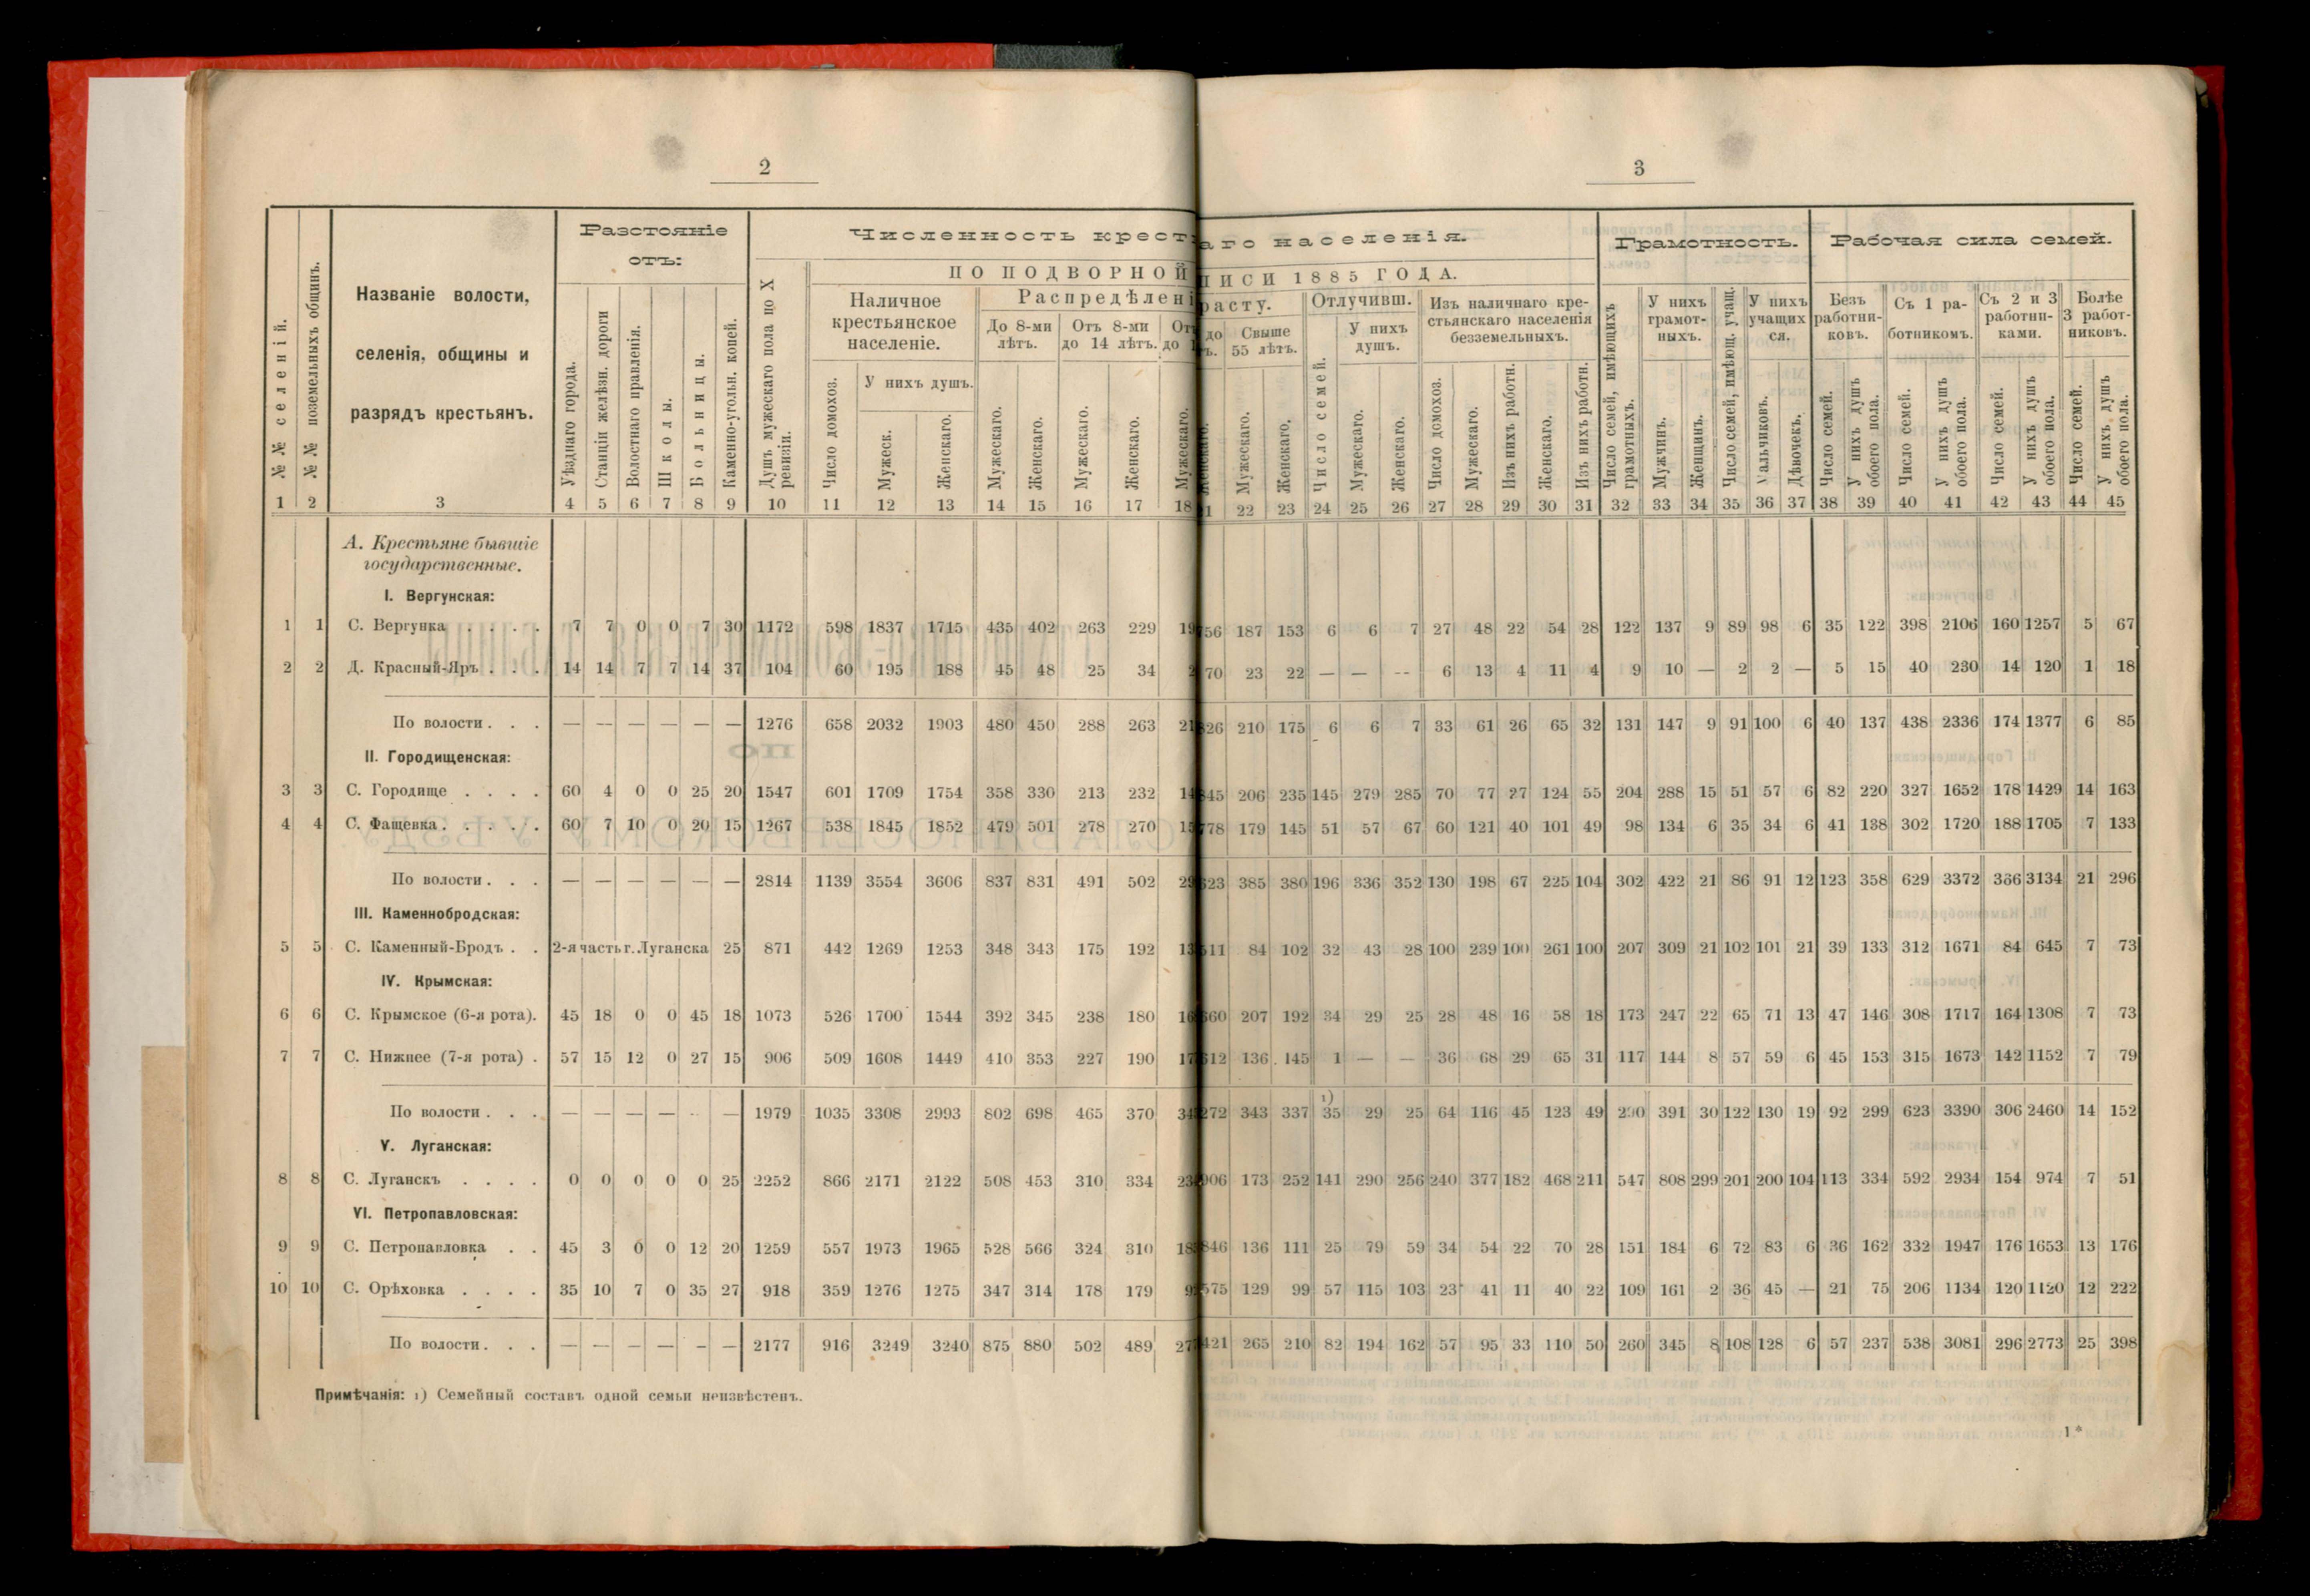 2
3
Разстояніе
отъ:
Численность крест
аго населенія.
Грамотность.
Рабочая сила семей.
ПО ПОДВОРНОЙ
ПИСИ 1885 ГОДА.
№№ селеній.
№№ поземельныхъ общинъ.
Названіе волости,
селенія, общины и
разрядъ крестьянъ.
Уѣзднаго города.
Станціи желѣзн. дороги
Волостнаго правленія.
Школы.
Больницы.
Каменно-угольн. копей.
Душъ мужескаго пола по X
ревизіи.
Наличное
крестьянское
населеніе.
Число домохоз.
У нихъ душъ.
Мужеск.
Женскаго.
Распредѣлені
расту.
До 8-ми
лѣтъ.
Отъ 8-ми
до 14 лѣтъ.
Мужескаго.
Женскаго.
Мужескаго.
Женскаго.
Мужескаго.
Женскаго.
Свыше
55 лѣтъ.
Мужескаго.
Женскаго.
Отлучивш.
Число семей.
У нихъ
душъ.
Мужескаго.
Женскаго.
Изъ наличнаго кре-
стьянскаго населенія
безземельныхъ.
Число домохоз.
Мужескаго.
Изъ нихъ работн.
Женскаго.
Изъ нихъ работн.
Число семей, имѣющихъ
грамотныхъ.
У нихъ
грамот-
ныхъ.
Мужчинъ.
Женщинъ.
Число семей, имѣющ. учащ.
У нихъ
учащих
ся.
Мальчиковъ.
Дѣвочекъ.
Безъ
работни-
ковъ.
Число семей.
У нихъ душъ
обоего пола.
Съ 1 ра-
ботникомъ.
Число семей.
У нихъ душъ
обоего пола.
Съ 2 и 3
работни-
ками.
Число семей.
У нихъ душъ
обоего пола.
Болѣе
3 работ-
никовъ.
Число семей.
У нихъ душъ
обоего пола.
1 2 3 4 5 6 7 8 9 10 11 12 13 14 15 16 17 18 1 22 23 24 25 26 27 28 29 30 31 32 33 34 35 36 37 38 39 40 41 42 43 44 45
А. Крестьяне бывшіе
государственные.
I. Вергунская:
1 1 С. Вергунка . . . . 7 7 0 0 7 30 1172 598 1837 1715 435 402 263 229 19 756 187 153 6 6 7 27 48 22 54 28 122 137 9 89 98 6 35 122 398 2106 160 1257 5 67
2 2 Д. Красный-Яръ . . . 14 14 7 7 14 37 104 60 195 188 45 48 25 34 2 70 23 22 — — -- 6 13 4 11 4 9 10 — 2 2 — 5 15 40 230 14 120 1 18
По волости . . . — — — — — — 1276 658 2032 1903 480 450 288 263 21 826 210 175 6 6 7 33 61 26 65 32 131 147 9 91 100 6 40 137 438 2336 174 1377 6 85
II. Городищенская:
3 3 С. Городище . . . . 60 4 0 0 25 20 1547 601 1709 1754 358 330 213 232 14 845 206 235 145 279 285 70 77 27 124 55 204 288 15 51 57 6 82 220 327 1652 178 1429 14 163
4 4 С. Фащевка . . . . . 60 7 10 0 20 15 1267 538 1845 1852 479 501 278 270 15 778 179 145 51 57 67 60 121 40 101 49 98 134 6 35 34 6 41 138 302 1720 188 1705 7 133
По волости . . . — — — — — — 2814 1139 3554 3606 837 831 491 502 29 623 385 380 196 336 352 130 198 67 225 104 302 422 21 86 91 12 123 358 629 3372 366 3134 21 296
III. Каменнобродская:
5 5 С. Каменный-Бродъ . . 2-я часть г. Луганска 25 871 442 1269 1253 348 343 175 192 13 511 84 102 32 43 28 100 239 100 261 100 207 309 21 102 101 21 39 133 312 1671 84 645 7 73
IV. Крымская:
6 6 С. Крымское (6-я рота). 45 18 0 0 45 18 1073 526 1700 1544 392 345 238 180 16 660 207 192 34 29 25 28 48 16 58 18 173 247 22 65 71 13 47 146 308 1717 164 1308 7 73
7 7 С. Нижнее (7-я рота) . 57 15 12 0 27 15 906 509 1608 1449 410 353 227 190 17 612 136 145 1 — — 36 68 29 65 31 117 144 8 57 59 6 45 153 315 1673 142 1152 7 79
По волости . . . — — — — - — 1979 1035 3308 2993 802 698 465 370 34 272 343 337 1) 35 29 25 64 116 45 123 49 290 391 30 122 130 19 92 299 623 3390 306 2460 14 152
V. Луганская:
8 8 С. Луганскъ . . . . 0 0 0 0 0 25 2252 866 2171 2122 508 453 310 334 23 906 173 252 141 290 256 240 377 182 468 211 547 808 299 201 200 104 113 334 592 2934 154 974 7 51
VI. Петропавловская:
9 9 С. Петропавловка . . 45 3 0 0 12 20 1259 557 1973 1965 528 566 324 310 18 846 136 111 25 79 59 34 54 22 70 28 151 184 6 72 83 6 36 162 332 1947 176 1653 13 176
10 10 С. Орѣховка . . . . 35 10 7 0 35 27 918 359 1276 1275 347 314 178 179 9 575 129 99 57 115 103 23 41 11 40 22 109 161 2 36 45 — 21 75 206 1134 120 1120 12 222
По волости . . . — — — — - — 2177 916 3249 3240 875 880 502 489 27 421 265 210 82 194 162 57 95 33 110 50 260 345 8 108 128 6 57 237 538 3081 296 2773 25 398
Примѣчанія: 1) Семейный составъ одной семьи неизвѣстенъ.
1*